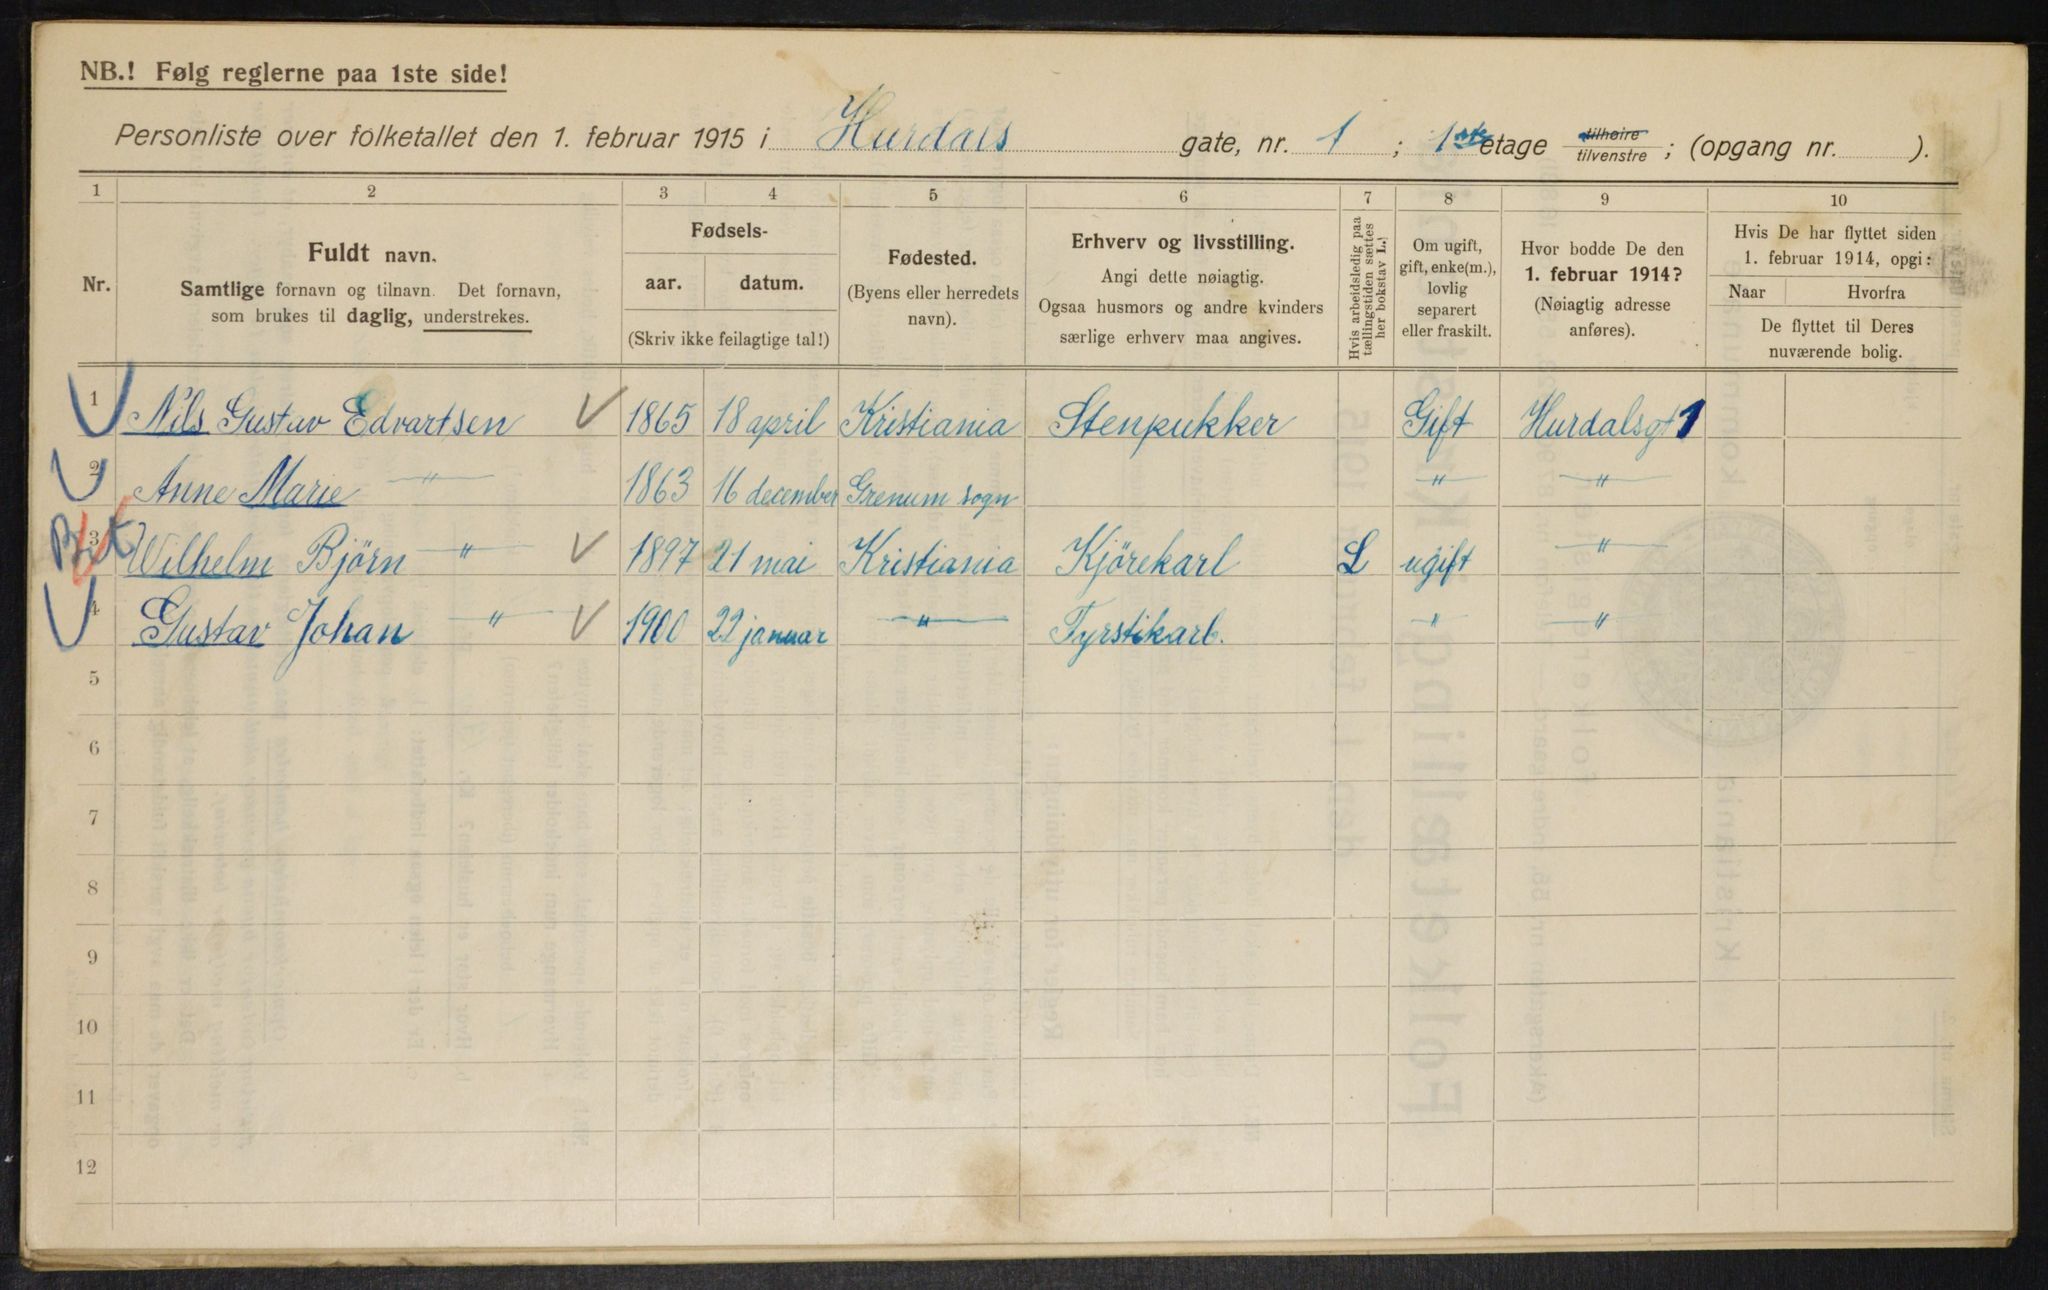 NB.! Følg reglerne paa 1ste side!
Personliste over folketallet den 1. februar 1915 i Hurdals gate, nr. 1 ; 1ste etage tilhøire / tilvenstre ; (opgang nr. ).
1 2 3 4 5 6 7 8 9 10
Nr.
Fuldt navn.
Samtlige fornavn og tilnavn. Det fornavn,
som brukes til daglig, understrekes.
Fødsels-
aar. datum.
(Skriv ikke feilagtige tal!)
Fødested.
(Byens eller herredets
navn).
Erhverv og livsstilling.
Angi dette nøiagtig.
Ogsaa husmors og andre kvinders
særlige erhverv maa angives.
Hvis arbeidsledig paa
tællingstiden sættes
her bokstav L.)
Om ugift,
gift, enke(m.),
lovlig
separert
eller fraskilt.
Hvor bodde De den
1. februar 1914?
(Nøiagtig adresse
anføres).
Hvis De har flyttet siden
1. februar 1914, opgi:
Naar Hvorfra
De flyttet til Deres
nuværende bolig.
1 Nils Gustav Edvartsen 1865 18 april Kristiania Stenpukker Gift Hurdalsgt 1
2 Anne Marie —"— 1863 16 december Grenum sogn —"— —"—
3 Wilhelm Björn —"— 1897 21 mai Kristiania Kjörekarl L ugift —"—
4 Gustav Johan —"— 1900 22 januar —"— Fyrstikarb. —"— —"—
5
6
7
8
9
10
11
12